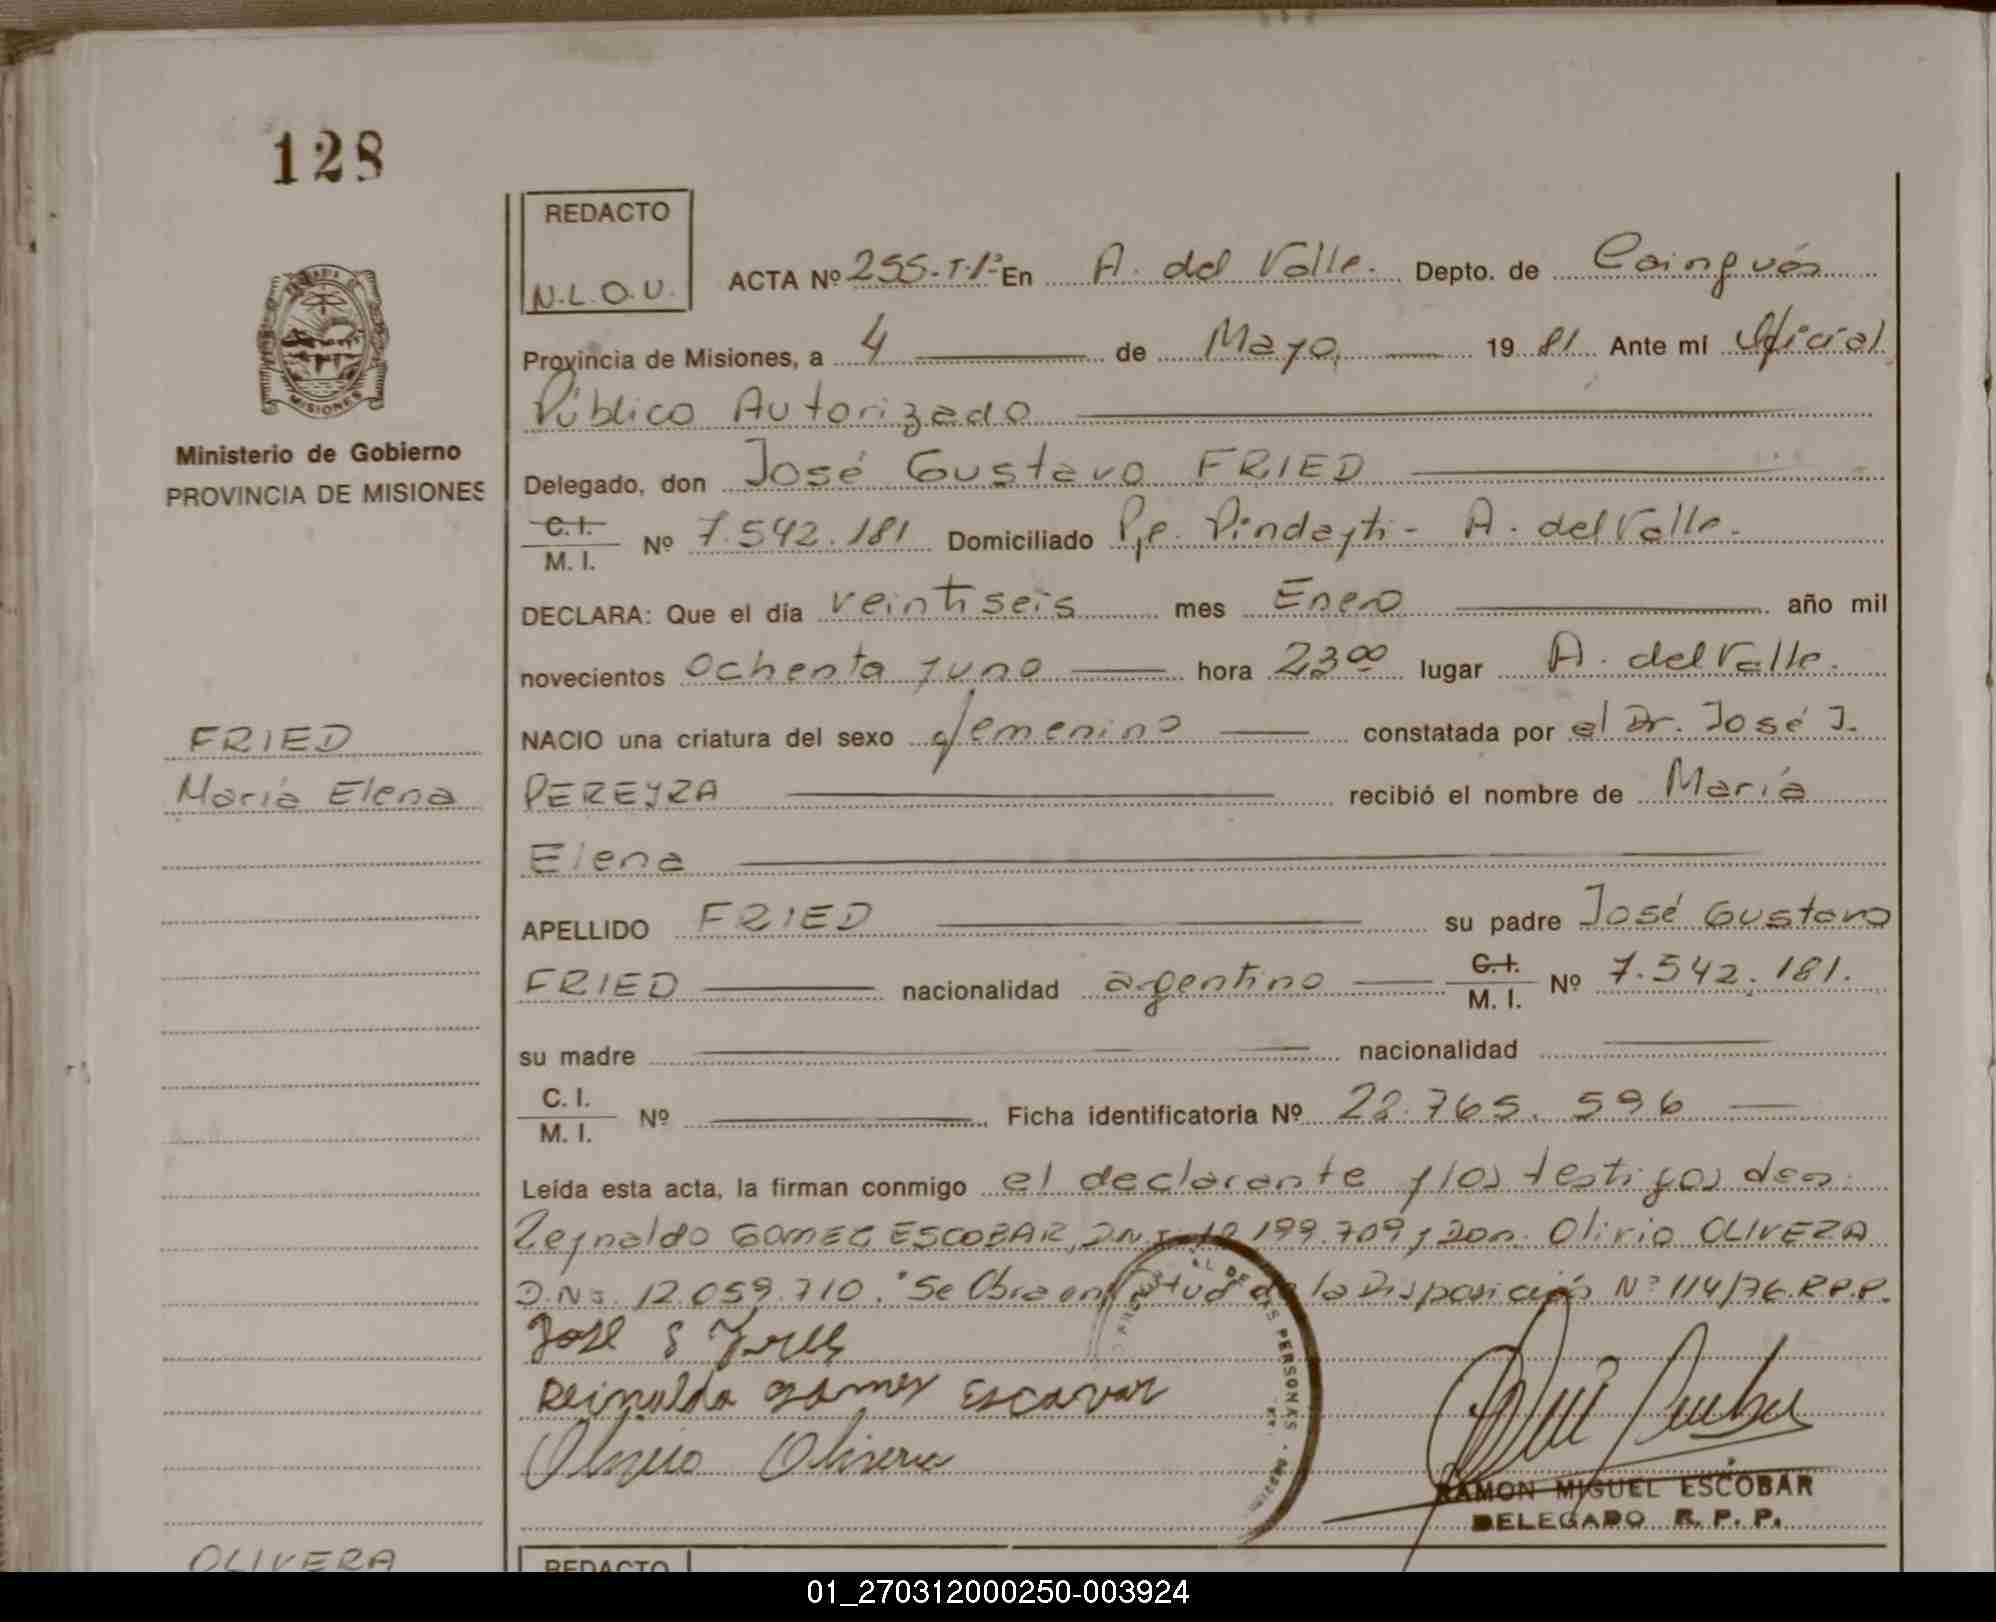 128
REDACTO
N.L.O.U.
ACTA Nº 255-T.1º- En A. del Valle. Depto. de Cainguás
Provincia de Misiones, a 4 de Mayo, 1981 Ante mí Oficial
Público Autorizado
MISIONES
Ministerio de Gobierno
PROVINCIA DE MISIONES
Delegado, don José Gustavo FRIED
C.I. M.I. Nº 7.542.181 Domiciliado Pje. Pindayti - A. del Valle.
DECLARA: Que el día veintiseis mes Enero año mil
novecientos ochenta y uno hora 23 00 lugar A. del Valle.
FRIED
María Elena
NACIO una criatura del sexo femenino constatada por el Dr. José J.
PEREYRA recibió el nombre de María
Elena
APELLIDO FRIED su padre José Gustavo
FRIED nacionalidad argentino C.I. M.I. Nº 7.542.181.
su madre nacionalidad
C.I. M.I. Nº Ficha identificatoria Nº 22.765.596
Leída esta acta, la firman conmigo el declarante y los testigos don
Reynaldo GOMEC ESCOBAR, D.N.I. 199.709 y Don. Olirio OLIVERA
D.N.I. 12.059.710. "Se Obra en de la Disposición Nº 114/76.R.P.P.
José G Fried
Reinaldo gomes Escavar
Olirio Olivera
PERSONAS
RAMON MIGUEL ESCOBAR
DELEGADO R. P. P.
OLIVERA
REDACTO
01_270312000250-003924